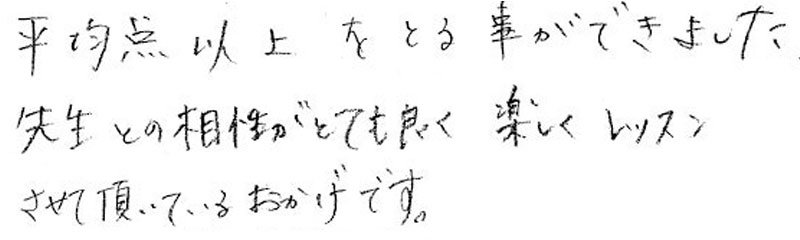 平均点以上をとる事ができました。
先生との相性がとても良く楽しくレッスン
させて頂いているおかげです。